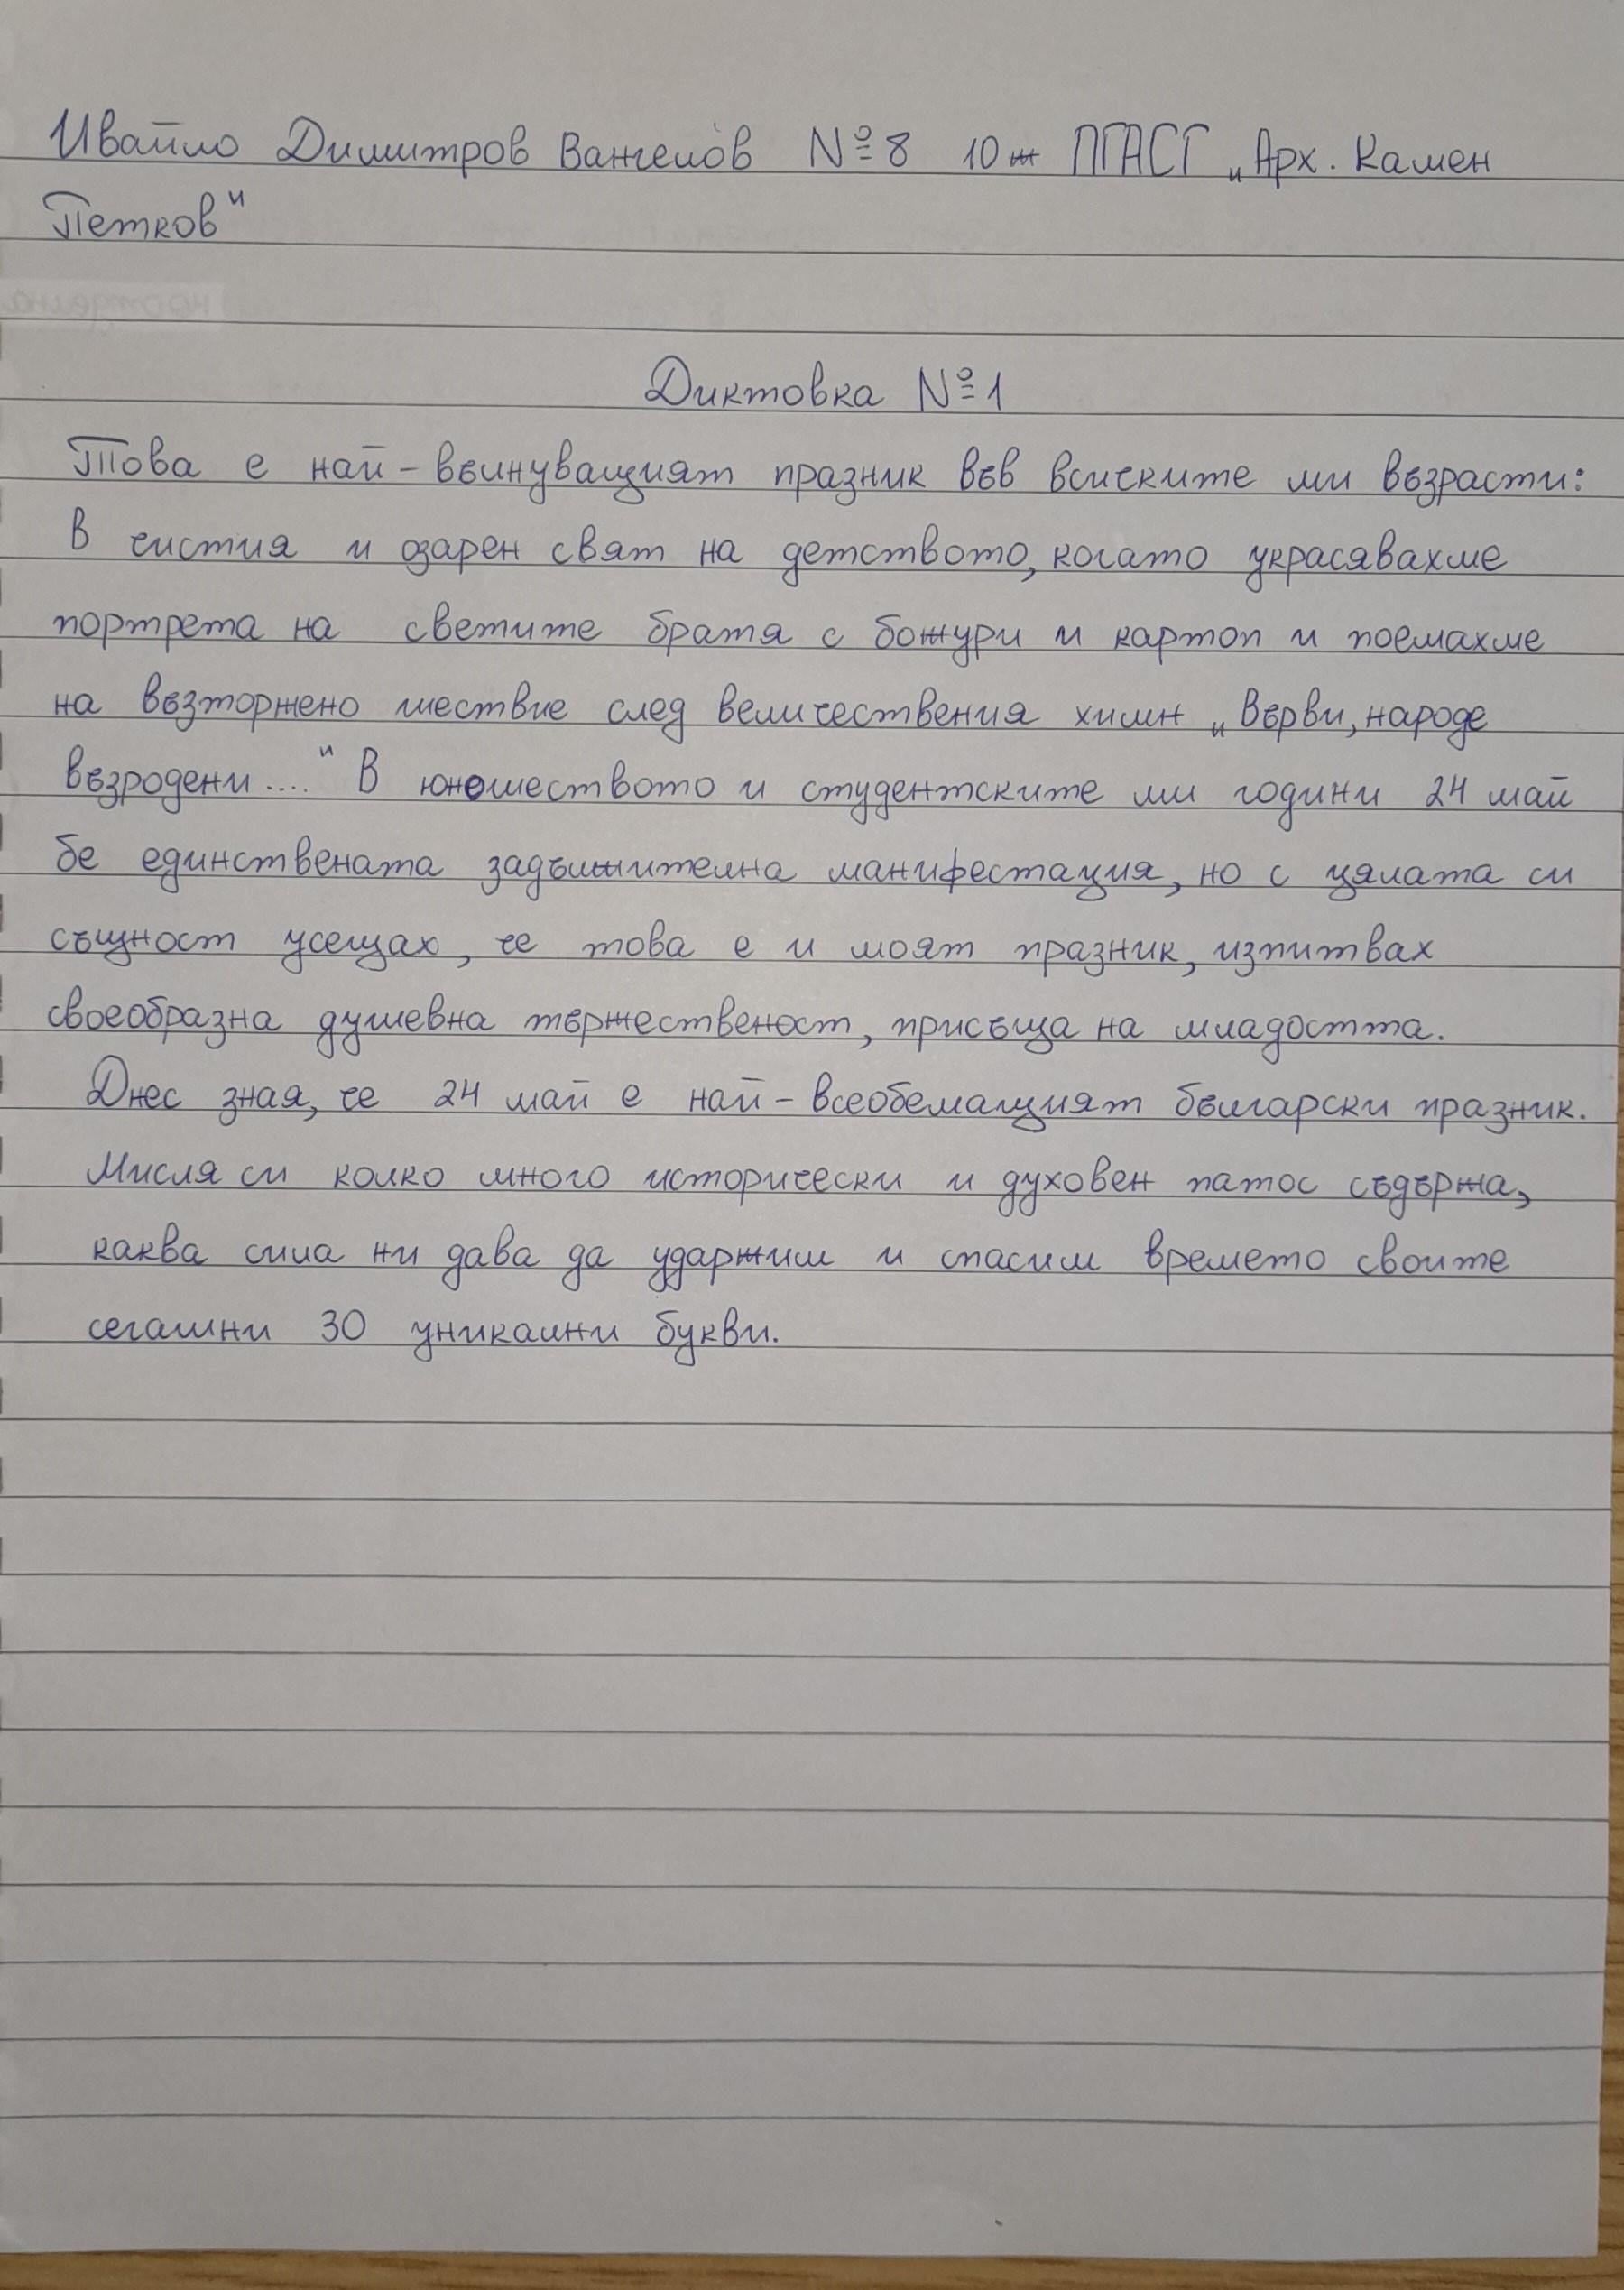 Ивайло Димитров Вангелов №8 10ж ПГАСГ „Арх. Камен
Петков"
Диктовка №1
Това е най-вълнуващият празник във всичките ми възрасти:
В чистия и озарен свят на детството, когато украсявахме
портрета на светите братя с божури и картоп и поемахме
на възторжено шествие след величествения химн „Върви, народе
възродени...." В юношеството и студентските ми години 24 май
бе единствената задължителна манифестация, но с цялата си
същност усещах, че това е и моят празник, изпитвах
своеобразна душевна тържественост, присъща на младостта.
Днес зная, че 24 май е най-всеобемащият български празник.
Мисля си колко много исторически и духовен патос съдържа,
каква сила ни дава да ударжим и спасим времето своите
сегашни 30 уникални букви.